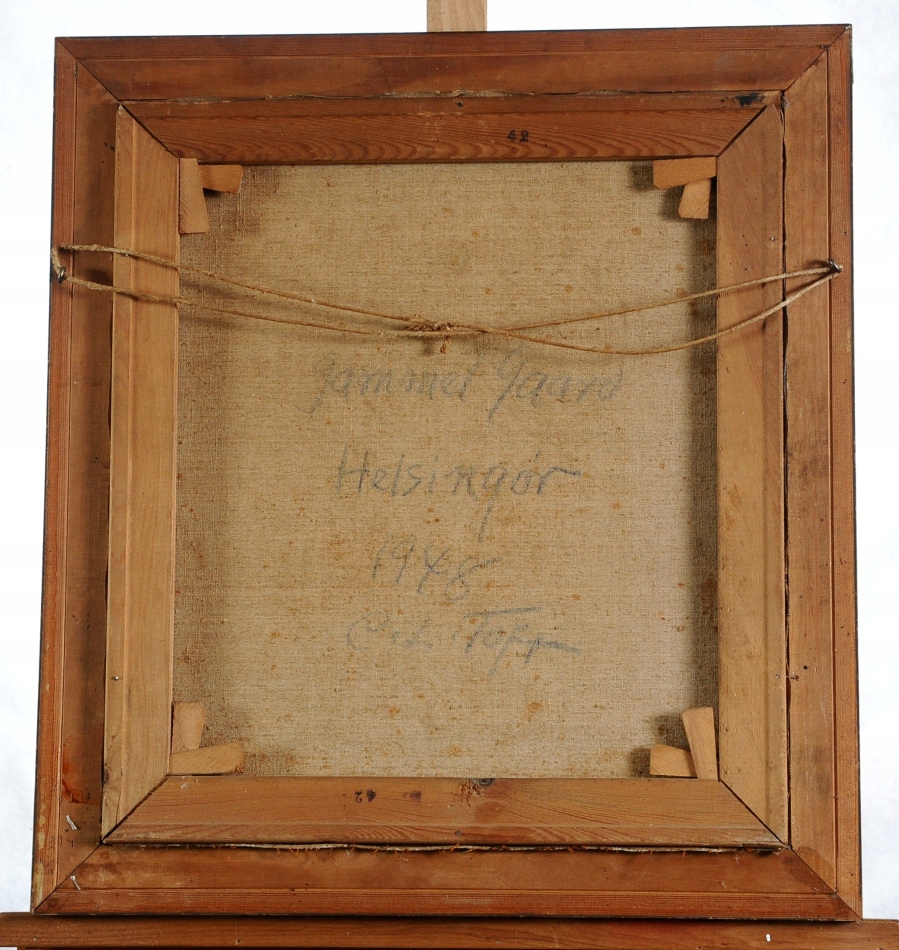 42
Gammel Gaard
Helsingör
1948
Topp
42